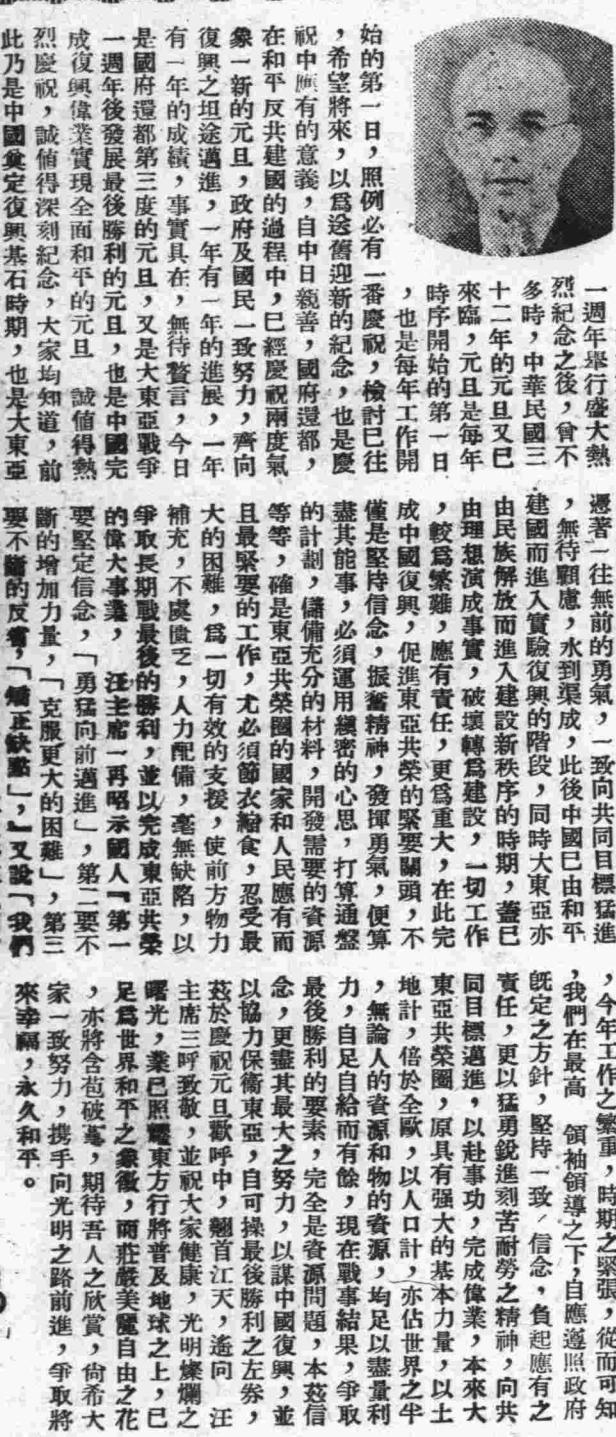 一週年舉行盛大熱
烈紀念之後，曾不
多時，中華民國三
十二年的元旦又已
來臨，元旦是每年
時序開始的第一日
，也是每年工作開
始的第一日，照例必有一番慶祝，檢討已往
，希望將來，以爲送舊迎新的紀念，也是慶
祝中應有的意義，自中日親善，國府還都，
在和平反共建國的過程中，已經慶祝兩度氣
象一新的元旦，政府及國民一致努力，齊向
復興之坦途邁進，一年有一年的進展，一年
有一年的成績，事實具在，無待贅言，今日
是國府還都第三度的元旦，又是大東亞戰爭
一週年後發展最後勝利的元旦，也是中國完
成復興偉業實現全面和平的元旦　誠値得熱
烈慶祝，誠値得深刻紀念，大家均知道，前
此乃是中國奠定復興基石時期，也是大東亞
邁著一往無前的勇氣，一致向共同目標猛進
，無待顧慮，水到渠成，此後中國已由和平
建國而進入實驗復興的階段，同時大東亞亦
由民族解放而進入建設新秩序的時期，蓋已
由理想演成事實，破壞轉爲建設，一切工作
，較爲繁難，應有責任，更爲重大，在此完
成中國復興，促進東亞共榮的緊要關頭，不
僅是堅持信念，振奮精神，發揮勇氣，便算
盡其能事，必須運用縝密的心思，打算通盤
的計劃，儲備充分的材料，開發需要的資源
等等，確是東亞共榮圈的國家和人民應有而
且最緊要的工作，尤必須節衣縮食，忍受最
大的困難，爲一切有效的支援，使前方物力
補充，不虞匱乏，人力配備，毫無缺陷，以
爭取長期戰最後的勝利，並以完成東亞共榮
的偉大事業，　汪主席一再昭示國人『第一
要堅定信念，「勇猛向前邁進」，第二要不
斷的增加力量，「克服更大的困難」，第三
要不斷的反省，「矯正缺點」，』又說「我們
，今年工作之繁重，時期之緊張，從而可知
，我們在最高　領袖領導之下，自應遵照政府
旣定之方針，堅持一致，信念，負起應有之
責任，更以猛勇銳進刻苦耐勞之精神，向共
同目標邁進，以赴事功，完成偉業，本來大
東亞共榮圈，原具有强大的基本力量，以土
地計，倍於全歐，以人口計，亦佔世界之半
，無論人的資源和物的資源，均足以盡量利
力，自足自給而有餘，現在戰事結果，爭取
最後勝利的要素，完全是資源問題，本茲信
念，更盡其最大之努力，以謀中國復興，並
以協力保衛東亞，自可操最後勝利之左券，
茲於慶祝元旦歡呼中，翹首江天，遙向　汪
主席三呼致敬，並祝大家健康，光明燦爛之
曙光，業已照耀東方行將普及地球之上，已
足爲世界和平之象徵，而莊嚴美麗自由之花
，亦將含苞破蕚，期待吾人之欣賞，尙希大
家一致努力，携手向光明之路前進，爭取將
來幸福，永久和平。